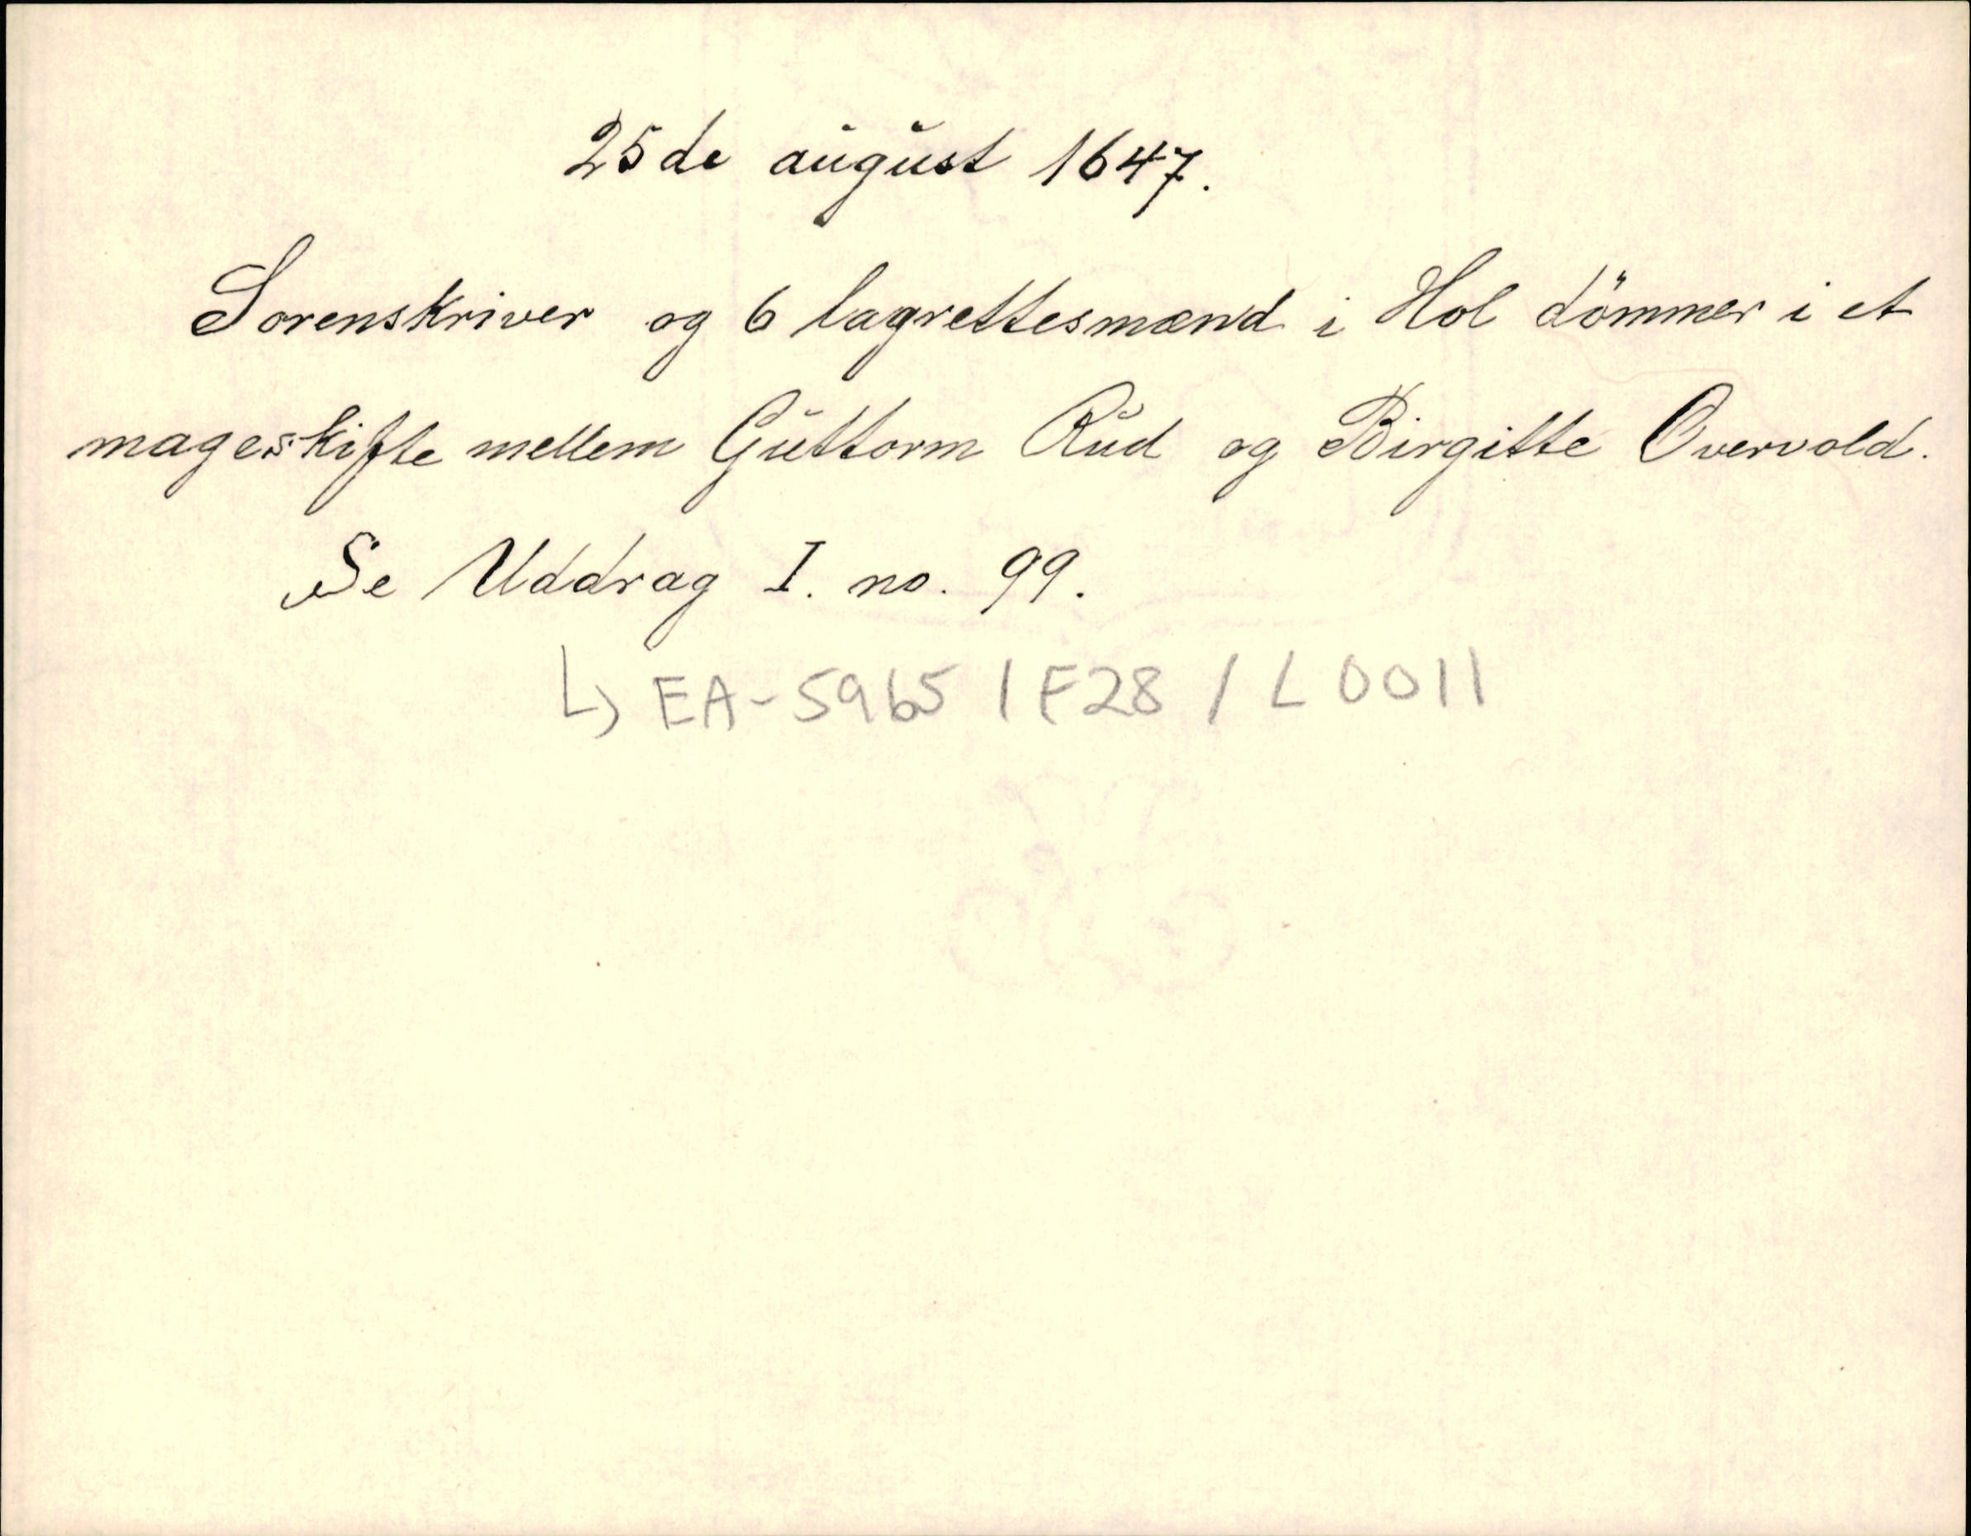 25de august 1647.
Sorenskriver og 6 lagrettesmænd i Hol dömmer i et
mageskifte mellem Guttorm Rud og Birgitte Overvold.
Se Uddrag I. no. 99.
↳ EA-5965 / F28 / L 0011